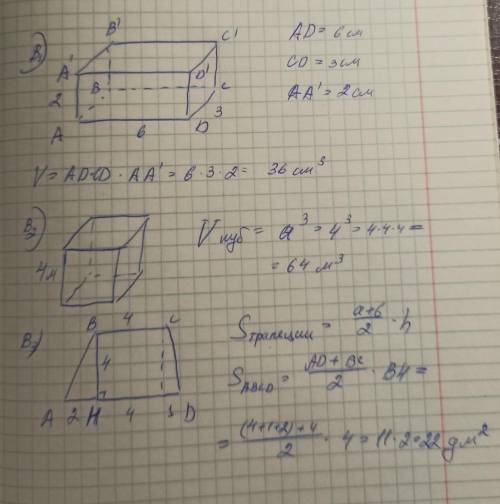 В1)
B'
C'
A'
D'
B
C
2
A
6
D
3
AD = 6 см
CD = 3 см
AA' = 2 см
V = AD·CD · AA' = 6 · 3 · 2 = 36 см³
В2)
4м
Vкуб = a³ = 4³ = 4·4·4 =
= 64 м³
В3)
B
4
C
4
A
2
H
4
1
D
Sтрапеции = a+b/2 · h
SABCD = AD + BC/2 · BH =
= (4+1+2)+4/2 · 4 = 11·2=22 дм²